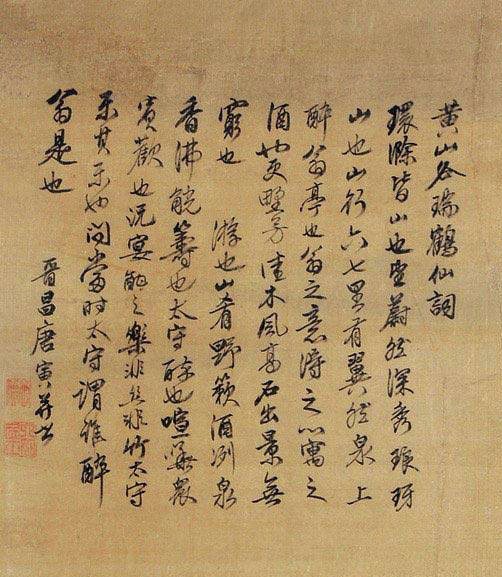 黃山谷瑞鶴仙詞
環滁皆山也望蔚然深秀瑯琊
山也山行六七里有翼然泉上
醉翁亭也翁之意得之心寓之
酒也更野芳佳木風高石出景無
窮也 游也山肴野蔌酒冽泉
香沸觥籌也太守醉也喧嘩衆
賓歡也況宴酣之樂非絲非竹太守
樂其樂也問當時太守謂誰醉
翁是也
晉昌唐寅并書